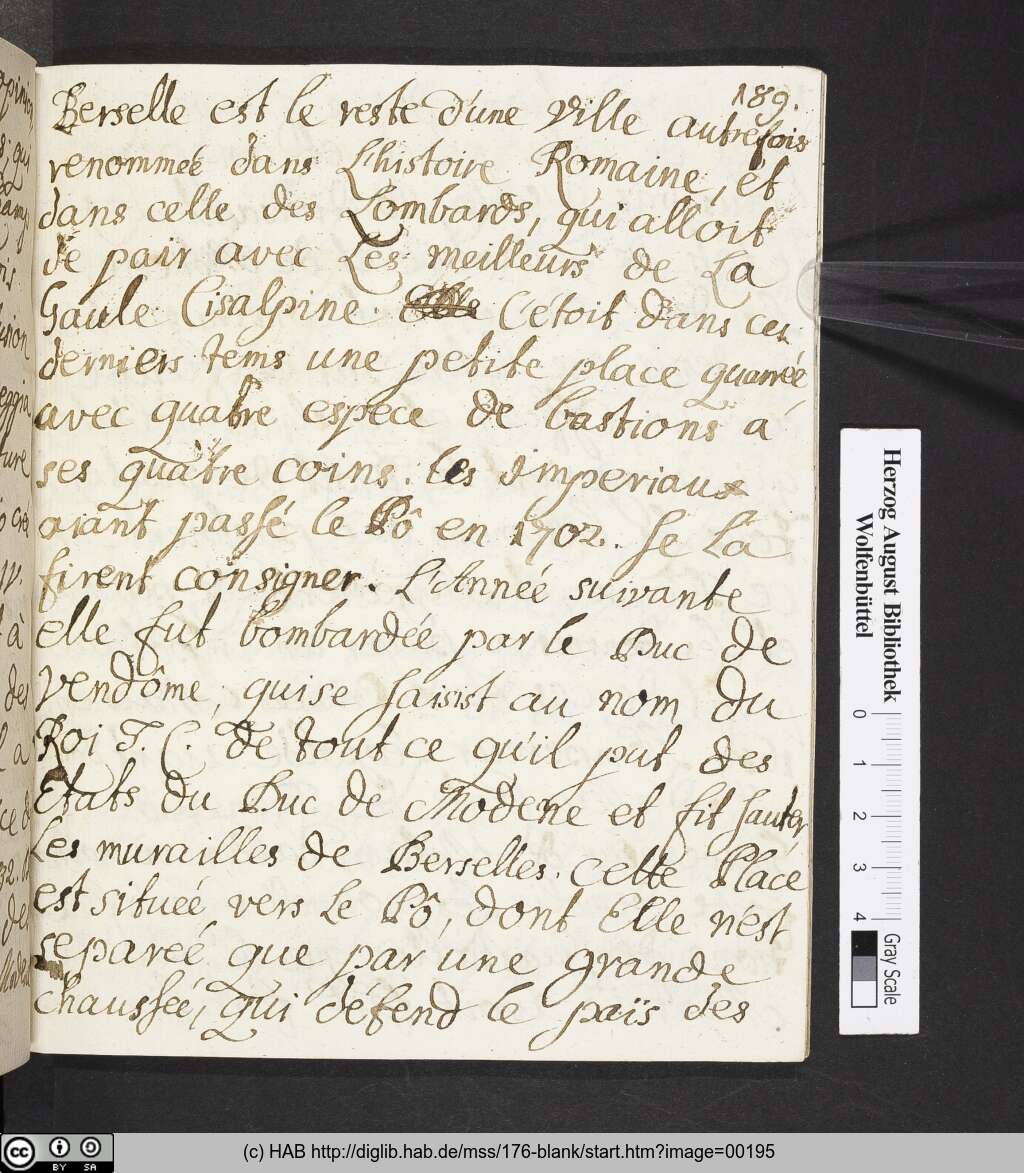 189.
Berselle est le reste d'une Ville autrefois
renommeé dans L'histoire Romaine, et
dans celle des Lombards, qui alloit
de pair avec Les meilleurs de La
Gaule Cisalpine. C'étoit dans ces
derniers tems une petite place quarreé
avec quatre espece de bastions á
ses quatre coins. les Imperiaux
aiant passé le Pô en 1702. se La
firent consigner. L'Anneé suivante
elle fut bombardée par le Duc de
Vendôme, qui se saisist au nom du
Roi T. C. de tout ce qu'il put des
Etats du Duc de Modene et fit sauter
Les murailles de Berselles. cette Place
est situeé vers Le Pô, dont Elle n'est
separeé que par une grande
chausseé, qui défend le païs des
Herzog August Bibliothek
Wolfenbüttel
0 1 2 3 4
Gray Scale
cc BY SA
(c) HAB http://diglib.hab.de/mss/176-blank/start.htm?image=00195